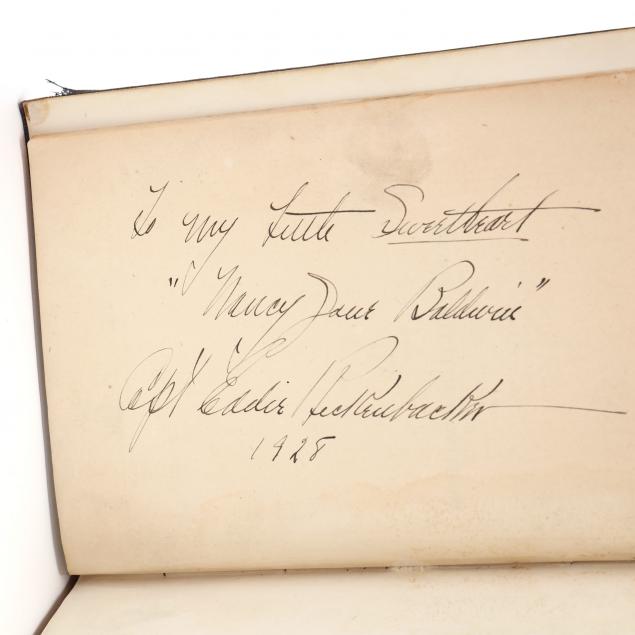 To my little Sweetheart
"Nancy Jane Baldwin"
Capt Eddie Rickenbacker
1928